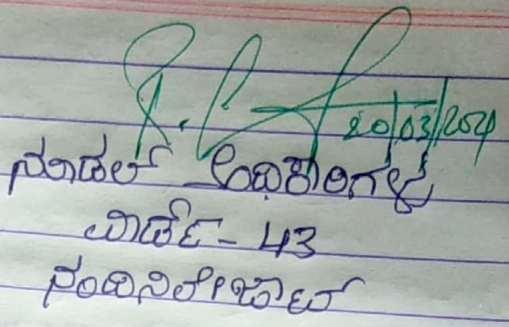 20/03/2021
ನೋಡಲ್ ಅಧಿಕಾರಿಗಳು
ವಾರ್ಡ್ - 43
ನಂದಿನಿಲೇಔಟ್